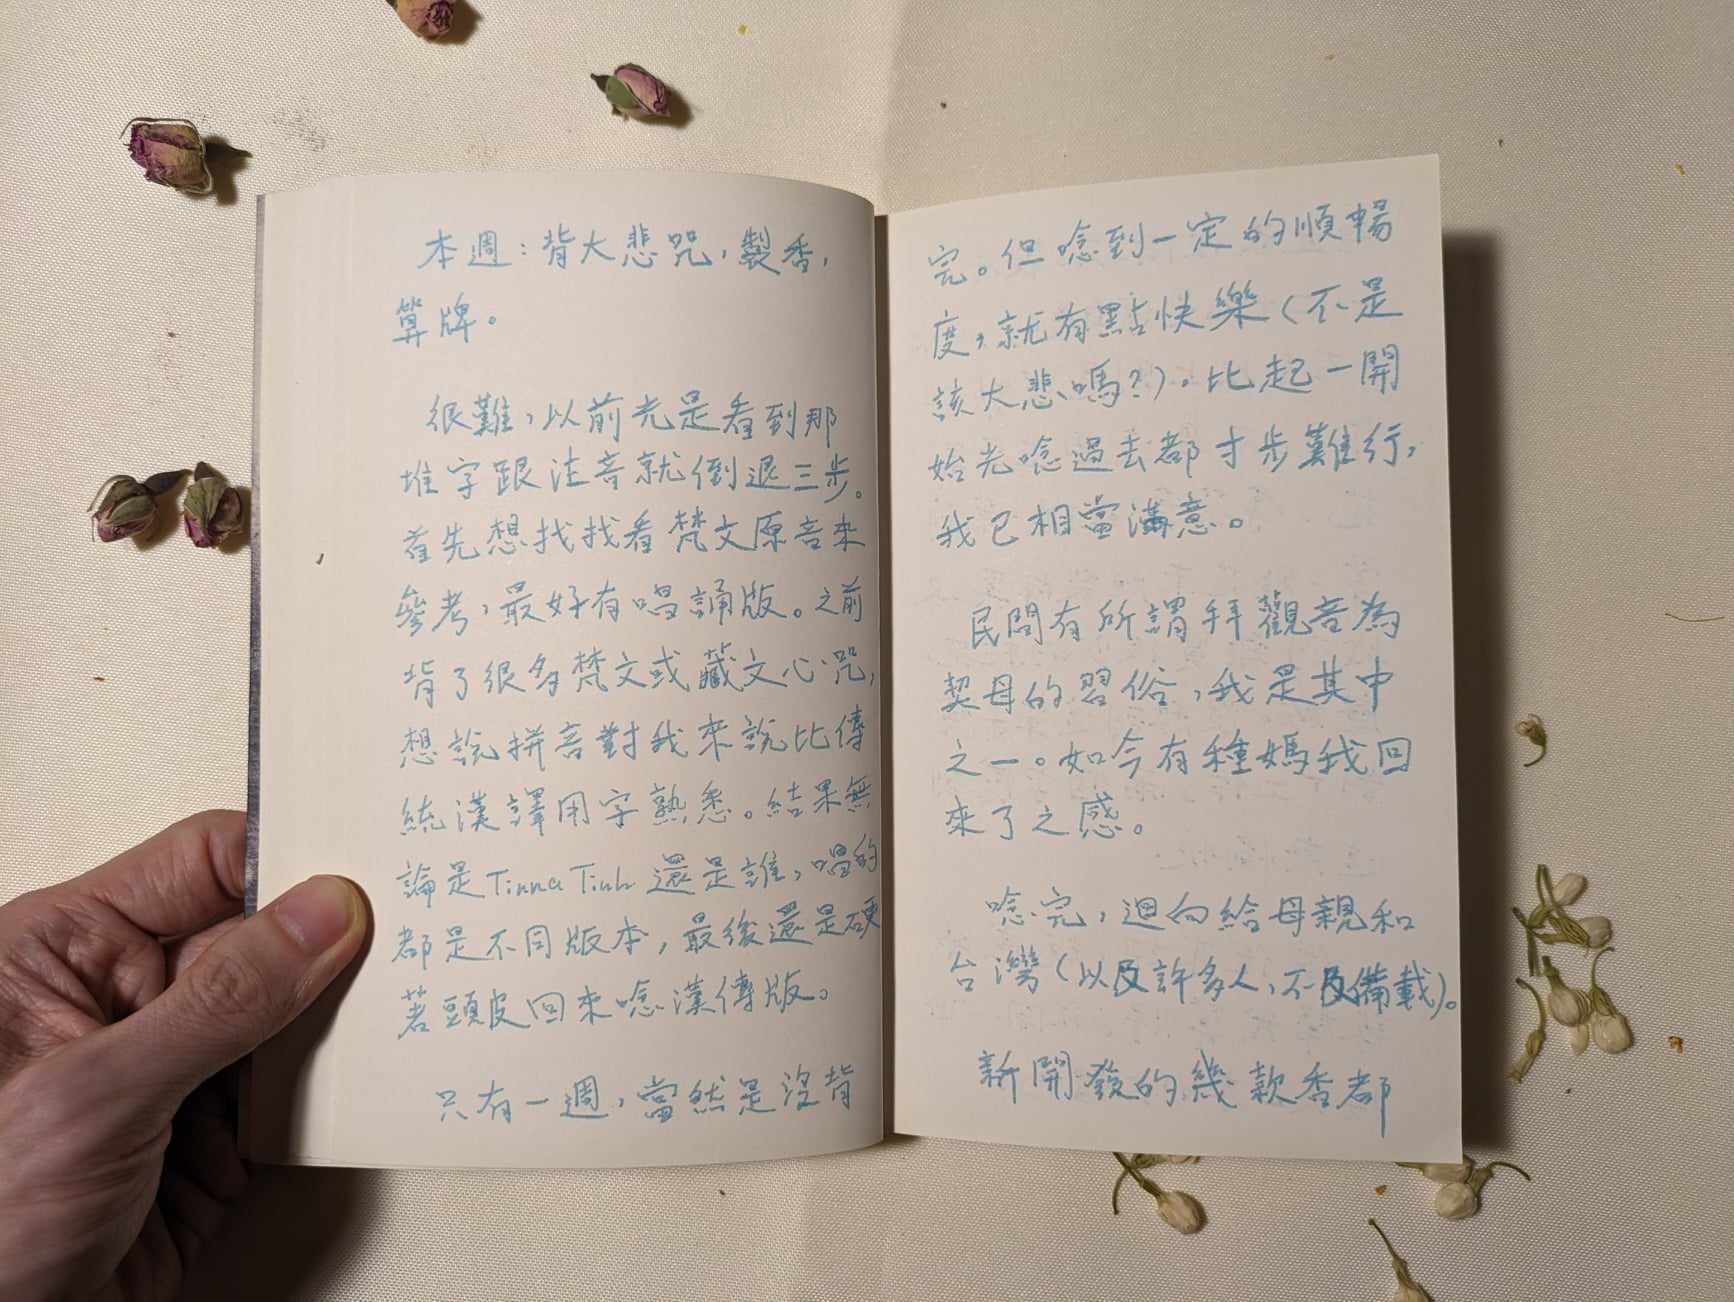 本週：背大悲咒，製香，
算牌。
很難，以前光是看到那
堆字跟注音就倒退三步。
首先想找找看梵文原音來
參考，最好有唱誦版。之前
背了很多梵文或藏文心咒，
想說拼音對我來說比傳
統漢譯用字熟悉。結果無
論是Tinna Tinh還是誰，唱的
都是不同版本，最後還是硬
著頭皮回來唸漢傳版。
只有一週，當然是沒背
完。但唸到一定的順暢
度，就有點快樂（不是
該大悲嗎？）。比起一開
始光唸過去都寸步難行，
我已相當滿意。
民間有所謂拜觀音為
契母的習俗，我是其中
之一。如今有種媽我回
來了之感。
唸完，迴向給母親和
台灣（以及許多人，不及備載）。
新開發的幾款香都